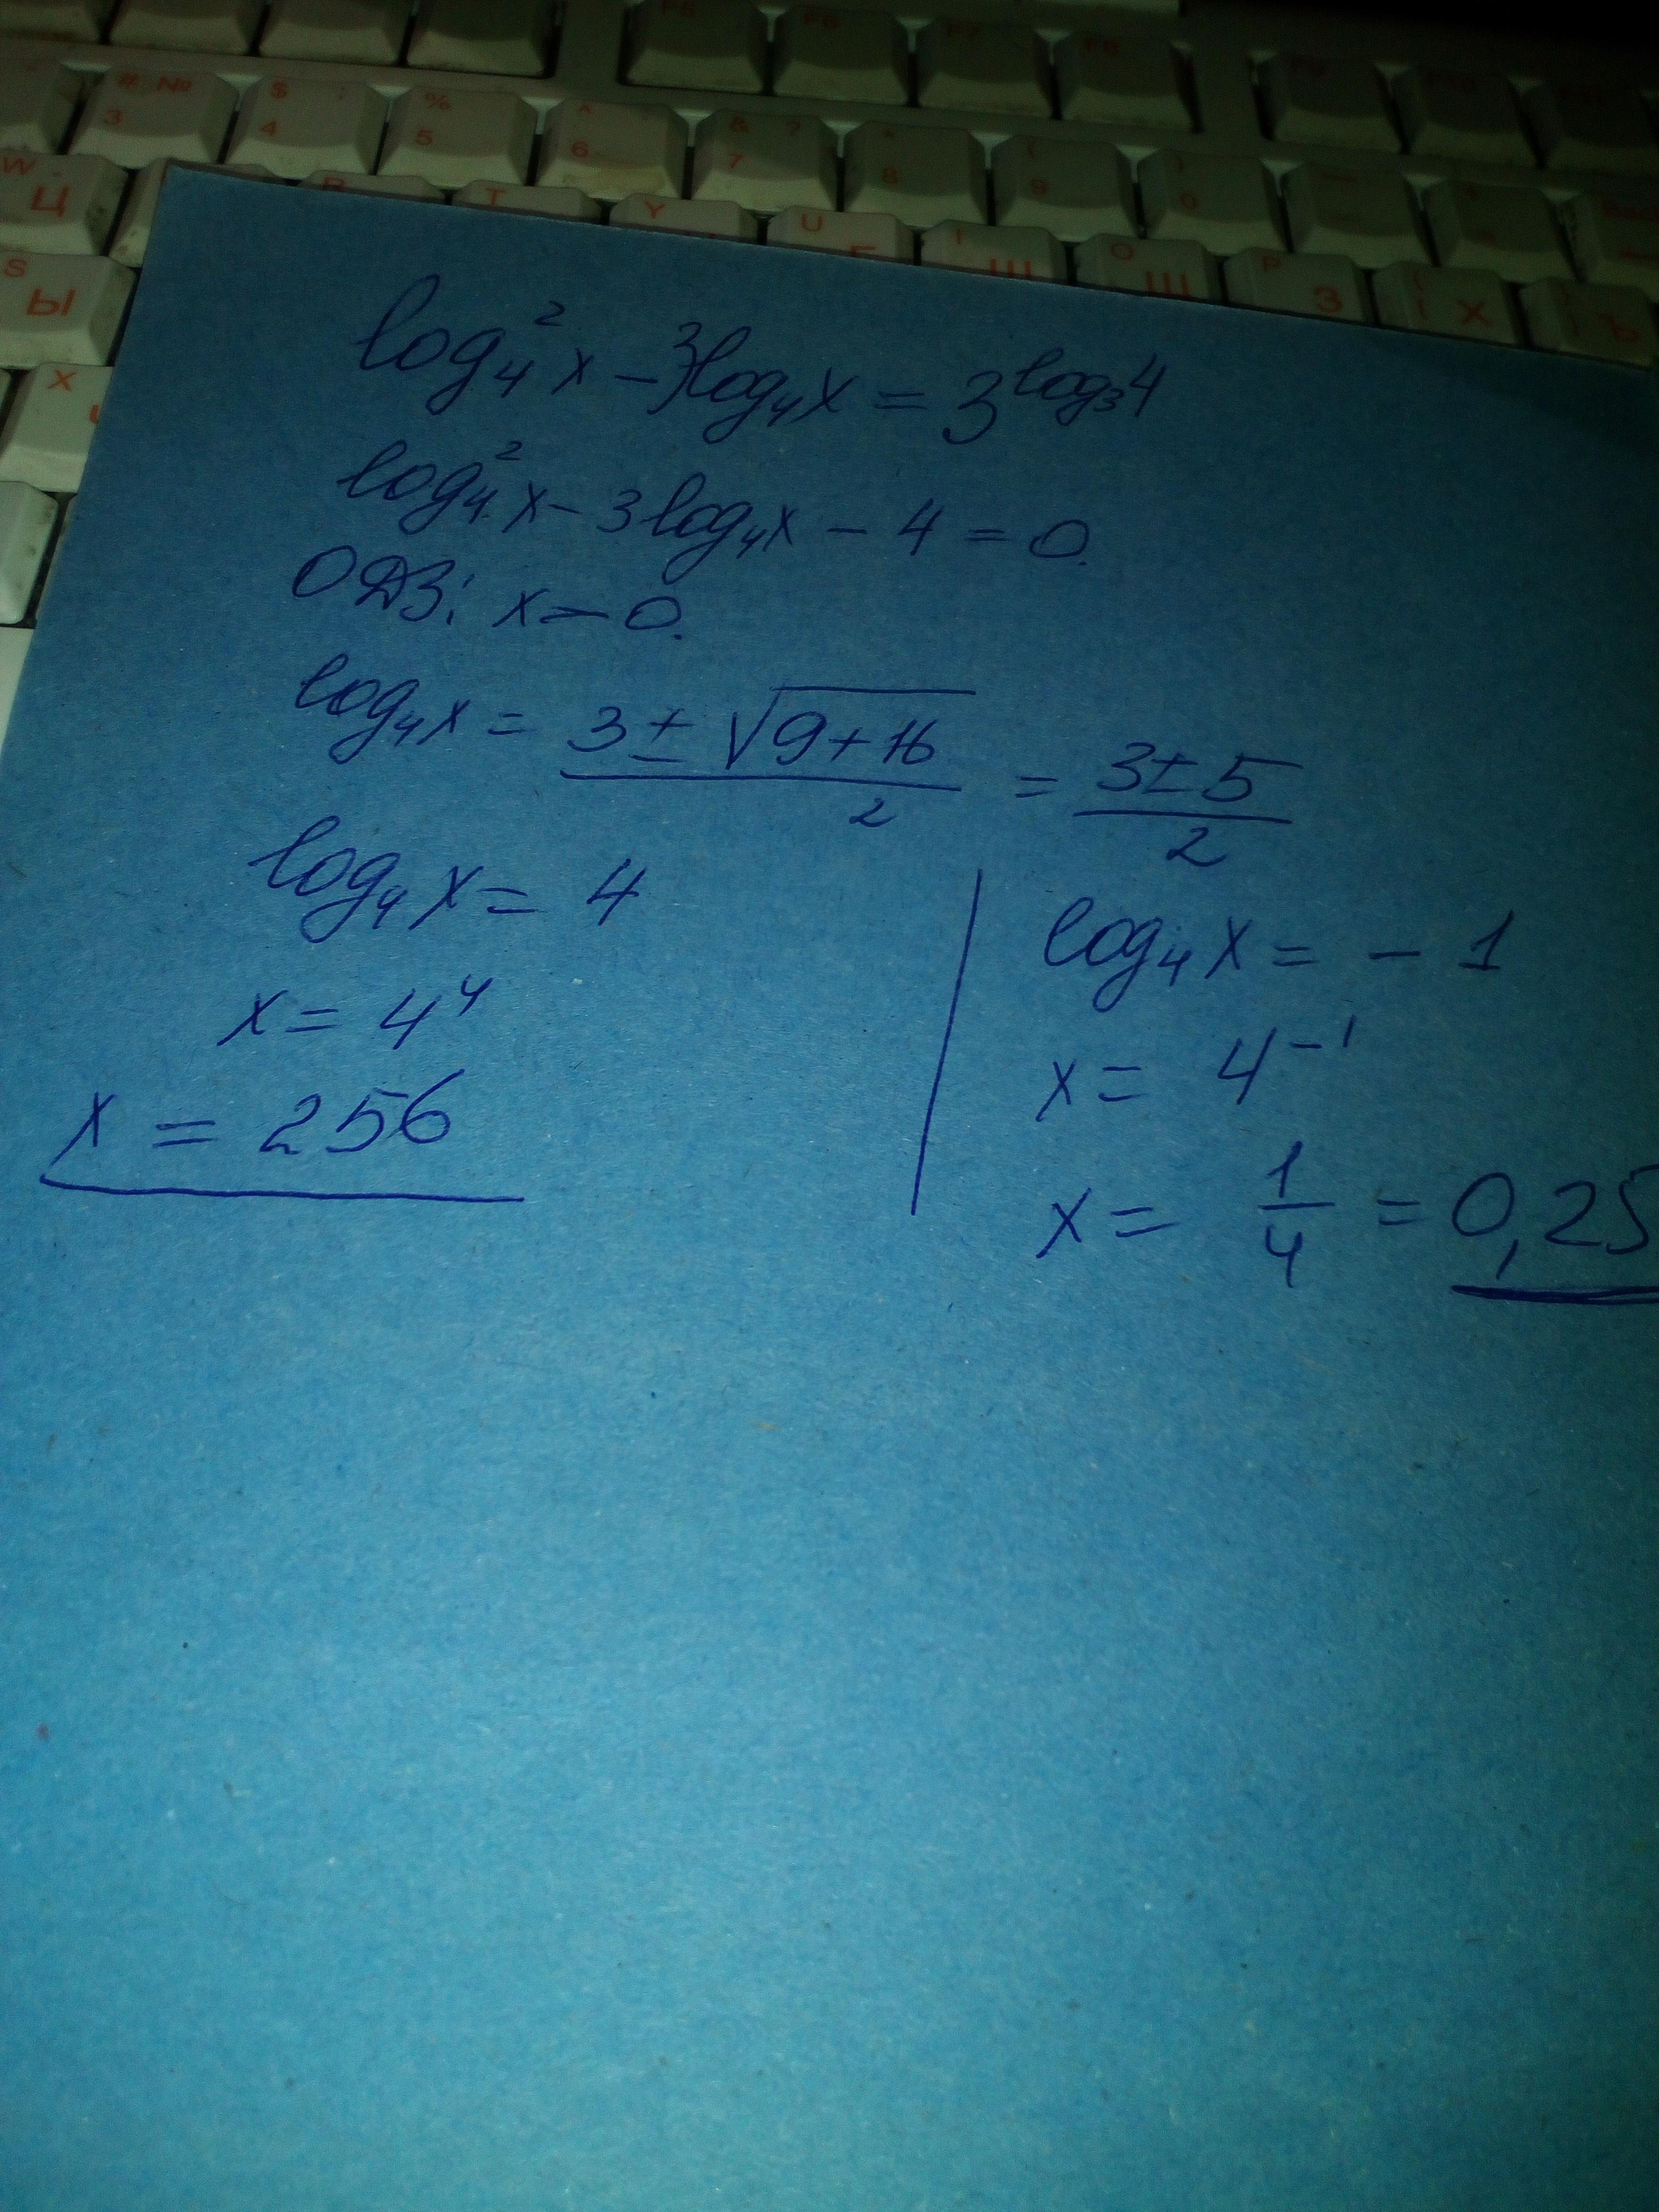 # № $ ; % ^ & ? * ( )
3 4 5 6 7 8 9 0
W Ц T Y U I O P
S Ы Ш З Х Ъ
X
log₄²x − 3log₄x = 3^log₃4
log₄²x − 3log₄x − 4 = 0.
ОДЗ: x > 0.
log₄x = (3 ± √(9+16))/2 = (3±5)/2
log₄x = 4
x = 4⁴
x = 256
log₄x = −1
x = 4⁻¹
x = 1/4 = 0,25